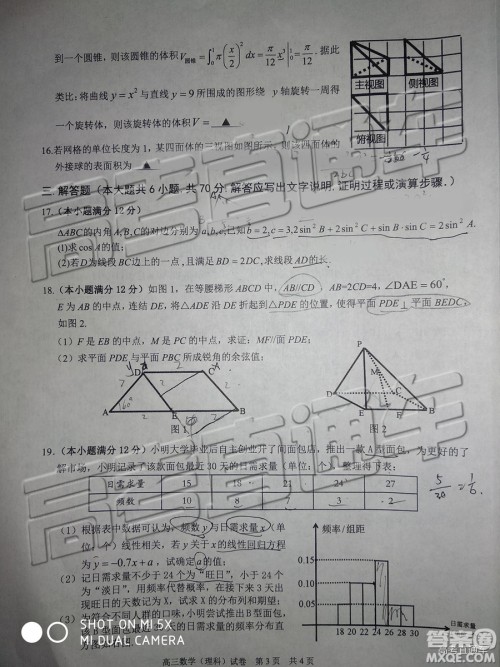 到一个圆锥，则该圆锥的体积V圆锥 = ∫₀¹ π(x/2)² dx = π/12 x³|₀¹ = π/12. 据此
类比：将曲线 y = x² 与直线 y = 9 所围成的图形绕 y 轴旋转一周得
一个旋转体，则该旋转体的体积V = ▲
16.若网格的单位长度为1，某四面体的三视图如图所示，则该四面体的
外接球的表面积为 ▲
主视图 侧视图
俯视图
三 解答题（本大题共6小题 共70分 解答应写出文字说明，证明过程或演算步骤.）
17.（本小题满分12分）
ΔABC的内角A,B,C的对边分别为a,b,c,已知b=2,c=3,2sin²B+2sin²C+sinB·sinC=2sin²A.
(1)求cosA的值；
(2)若D为线段BC边上的一点,且满足BD=2DC,求线段AD的长.
18.（本小题满分12分）如图1，在等腰梯形ABCD中，AB//CD，AB=2CD=4，∠DAE=60°，
E为AB的中点，连结DE，将△ADE沿DE折起到△PDE的位置，使得平面PDE⊥平面BEDC，
如图2.
（1）F是EB的中点，M是PC的中点，求证：MF//面PDE；
（2）求平面PDE与平面PBC所成锐角的余弦值；
D C
A E B
图1
P
M
D C
E F B
图2
19.（本小题满分12分）小明大学毕业后自主创业开了间面包店，推出一款A型面包，为更好的了
解市场，小明记录了该款面包最近30天的日需求量（单位：个），整理得下表：
日需求量 15 18 21 24 27
频数 10 8 7 3 2
5/30 = 1/6
（1）根据表中数据可认为，频数y与日需求量x（单
位：个）线性相关，若y关于x的线性回归方程
为y=-0.7x+a，试确定a的值；
（2）记日需求量不少于24个为“旺日”，小于24个
为“淡日”，用频率代替概率，在接下来3天出
现旺日的天数记为X，试求X的分布列和期望；
（3）为符合不同人群的口味，小明尝试推出B型面包，
频率/组距
0.15
0.10
0.05
18 20 22 24 26 28 30
日需求量
高三数学（理科）试卷 第3页 共4页
高考直通车
SHOT ON MI 5X
MI DUAL CAMERA